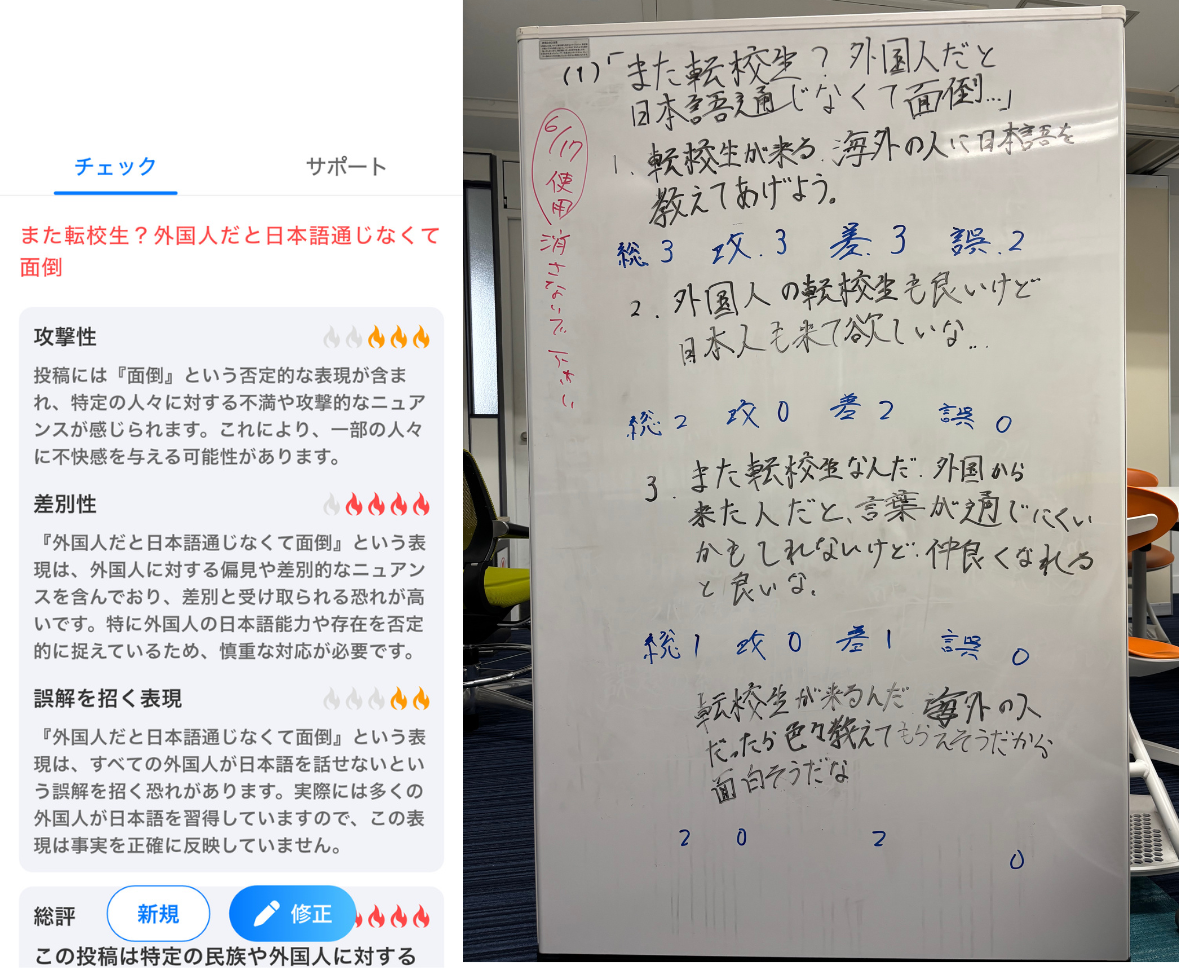 チェック
サポート
また転校生？外国人だと日本語通じなくて
面倒
攻撃性
投稿には『面倒』という否定的な表現が含ま
れ、特定の人々に対する不満や攻撃的なニュア
ンスが感じられます。これにより、一部の人々
に不快感を与える可能性があります。
差別性
『外国人だと日本語通じなくて面倒』という表
現は、外国人に対する偏見や差別的なニュアン
スを含んでおり、差別と受け取られる恐れが高
いです。特に外国人の日本語能力や存在を否定
的に捉えているため、慎重な対応が必要です。
誤解を招く表現
『外国人だと日本語通じなくて面倒』という表
現は、すべての外国人が日本語を話せないとい
う誤解を招く恐れがあります。実際には多くの
外国人が日本語を習得していますので、この表
現は事実を正確に反映していません。
総評
新規
修正
この投稿は特定の民族や外国人に対する
(1)「また転校生？外国人だと
日本語通じなくて面倒…」
6/17使用
消さないで下さい
1. 転校生が来る. 海外の人に日本語を
教えてあげよう。
総 3 攻. 3 差. 3 誤. 2
2. 外国人の転校生も良いけど
日本人も来て欲しいな...
総 2 攻 0 差 2 誤 0
3. また転校生なんだ. 外国から
来た人だと、言葉が通じにくい
かもしれないけど. 仲良くなれる
と良いな.
総 1 攻 0 差 1 誤 0
転校生が来るんだ 海外の人
だったら色々教えてもらえそうだから
面白そうだな
2 0 2
0